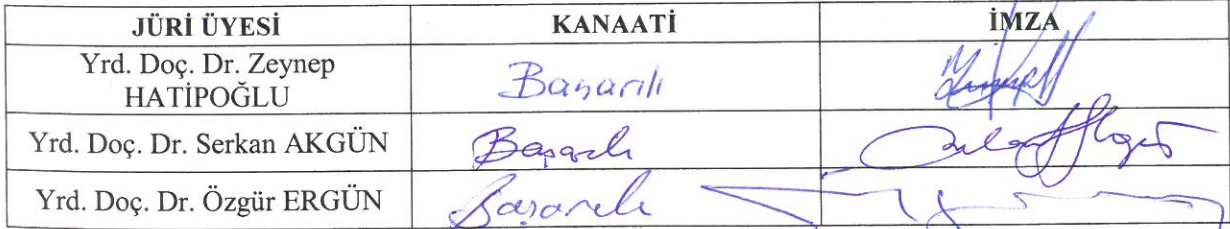 JÜRİ ÜYESİ KANAATİ İMZA
Yrd. Doç. Dr. Zeynep
HATİPOĞLU Başarılı
Yrd. Doç. Dr. Serkan AKGÜN Başarılı
Yrd. Doç. Dr. Özgür ERGÜN Başarılı